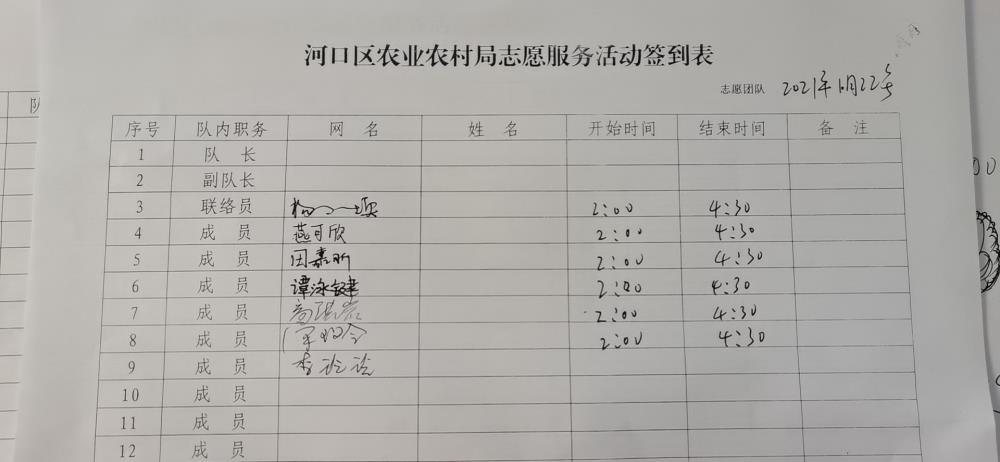 河口区农业农村局志愿服务活动签到表
志愿团队 2021年1月22号
序号 队内职务 网 名 姓 名 开始时间 结束时间 备 注
1 队 长
2 副队长
3 联络员 2:00 4:30
4 成 员 燕可欣 2:00 4:30
5 成 员 田嘉昕 2:00 4:30
6 成 员 谭泳健 2:00 4:30
7 成 员 2:00 4:30
8 成 员 2:00 4:30
9 成 员 李论论
10 成 员
11 成 员
12 成 员